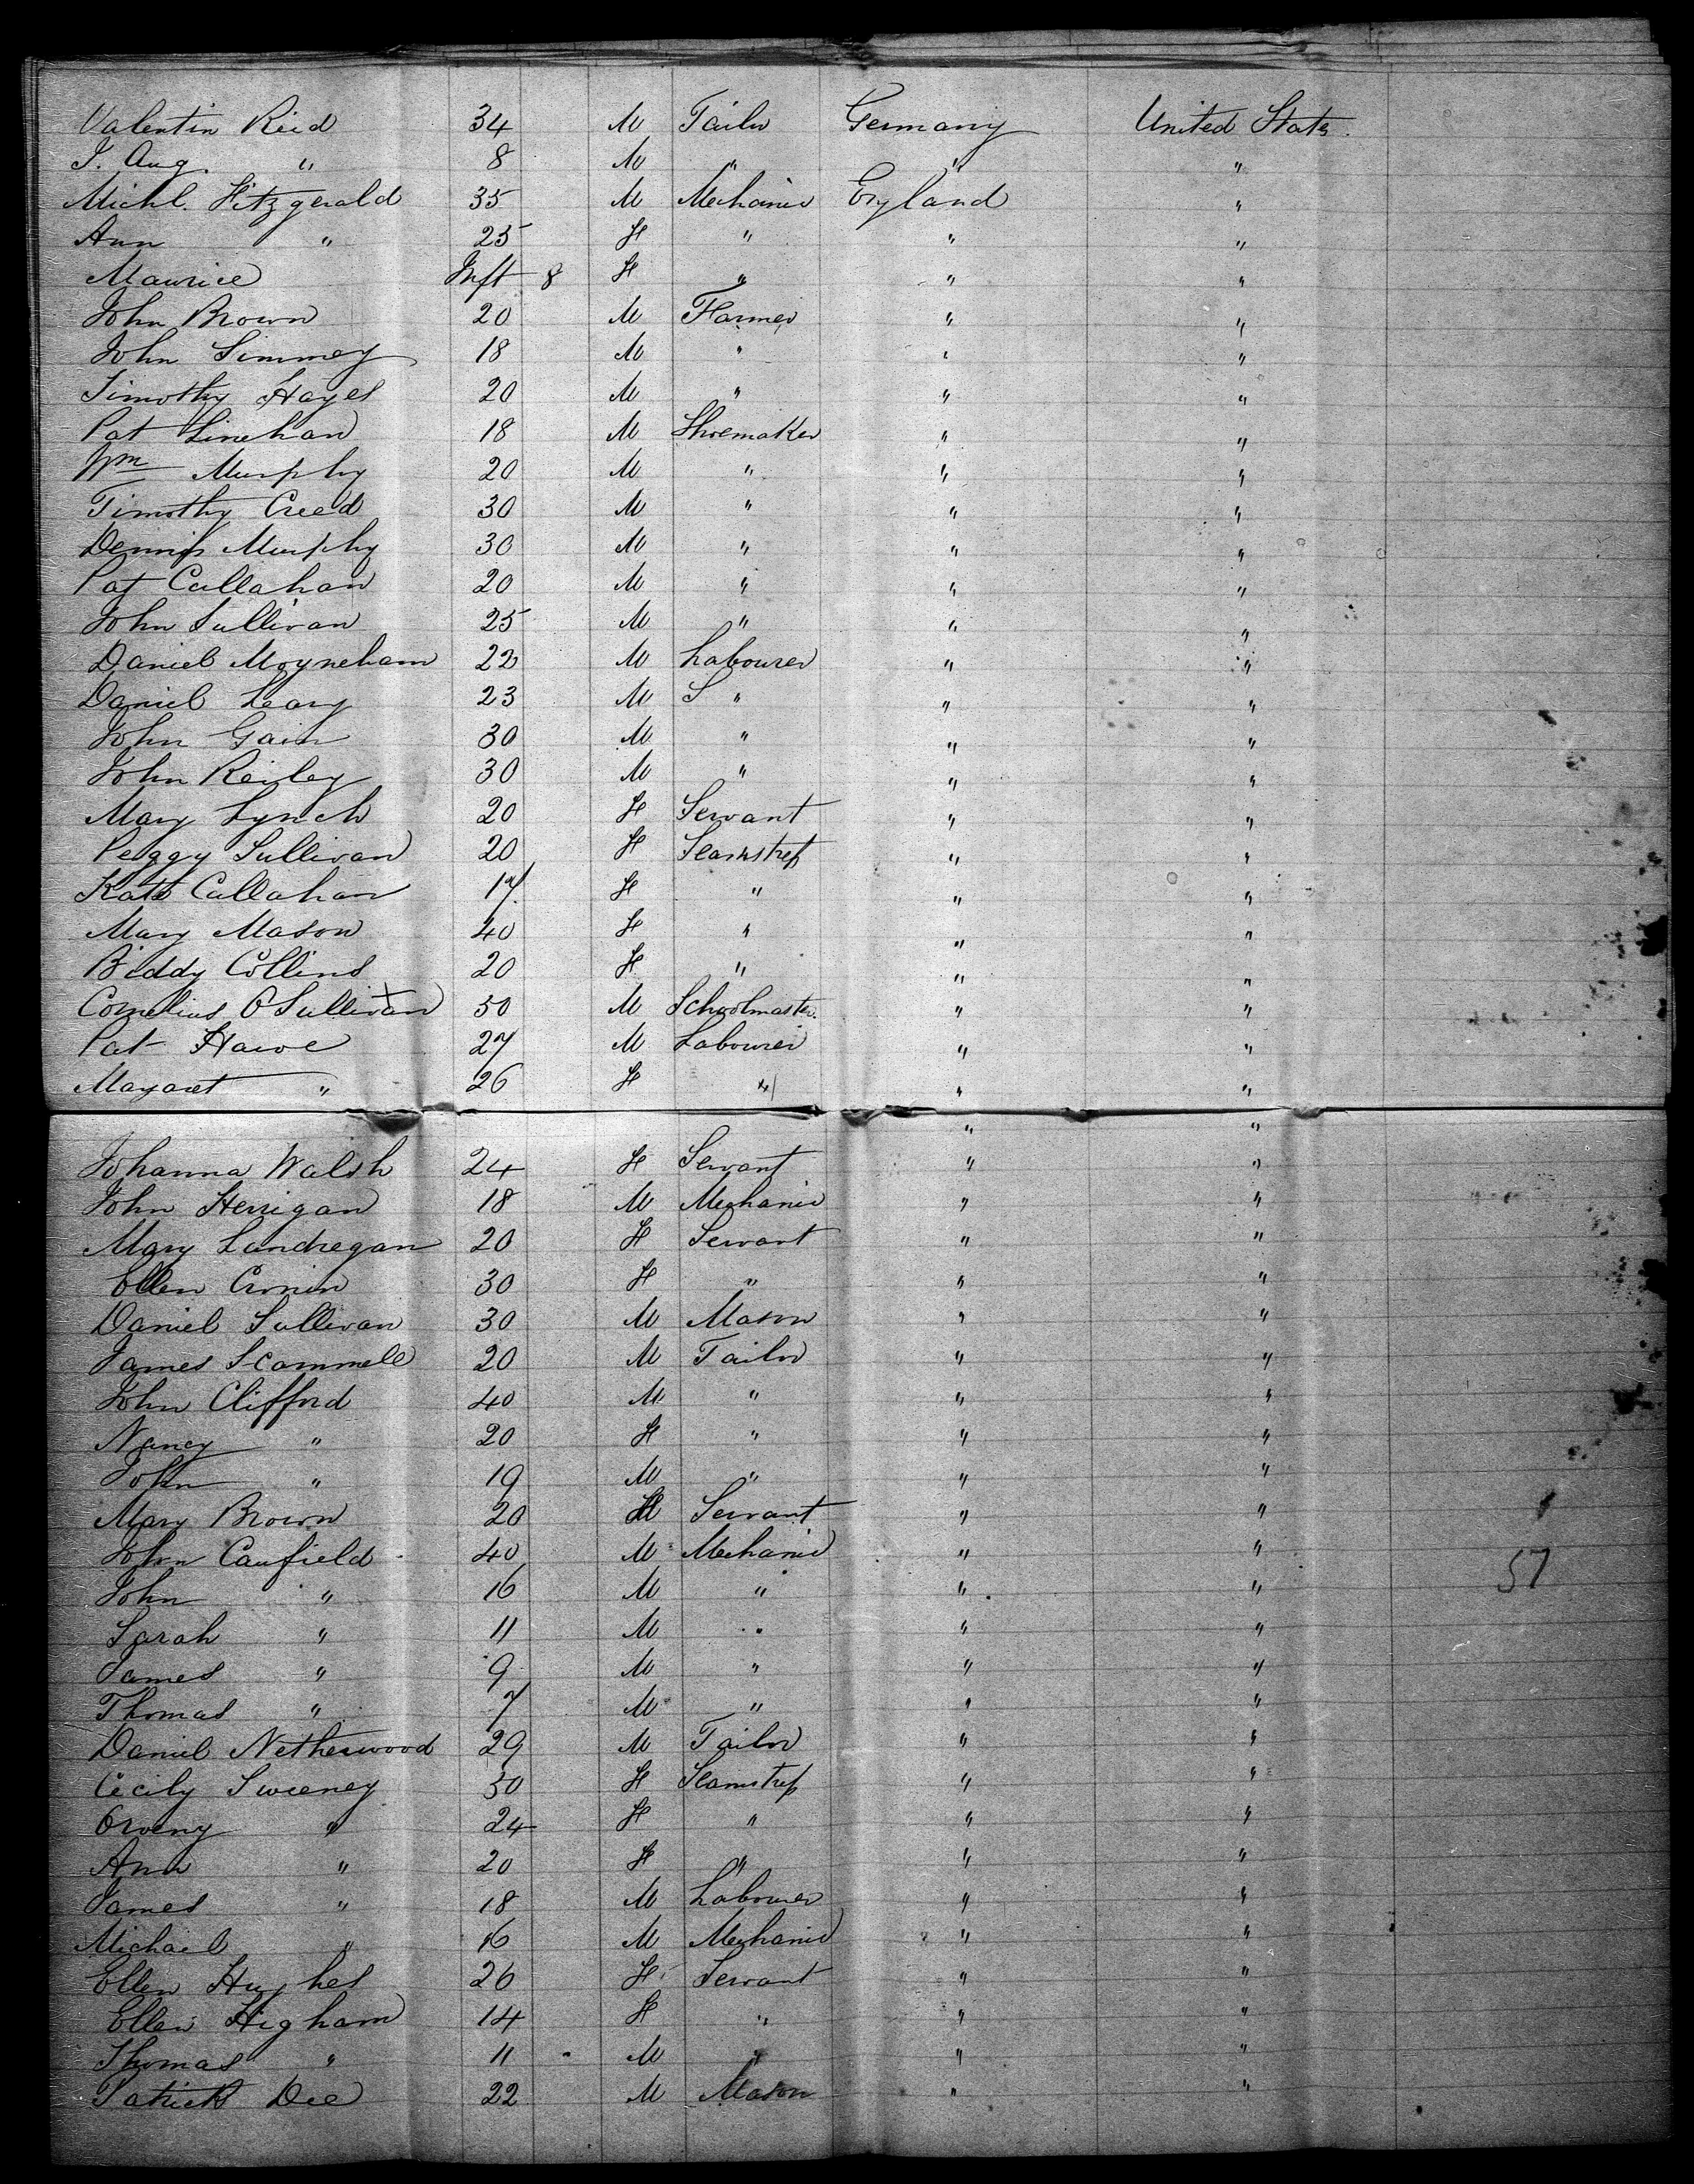 Valentin Reid 34 M Tailor Germany United States.
J. Aug. " 8 M " " "
Michl. Fitzgerald 35 M Mechanic England "
Ann " 25 F " " "
Maurice Inft 8 F " " "
John Brown 20 M Farmer " "
John Simmey 18 M " " "
Timothy Hayes 20 M " " "
Pat Linehan 18 M Shoemaker " "
Wm Murphy 20 M " " "
Timothy Creed 30 M " " "
Dennis Murphy 30 M " " "
Pat Callahan 20 M " " "
John Sullivan 25 M " " "
Daniel Moyneham 22 M Labourer " "
Daniel Leary 23 M S " " "
John Gain 30 M " " "
John Reiley 30 M " " "
Mary Lynch 20 F Servant " "
Peggy Sullivan 20 F Seamstress " "
Kate Callahan 17 F " " "
Mary Mason 40 F " " "
Biddy Collins 20 F " " "
Cornelius OSullivan 50 M Schoolmaster. " "
Pat Hawe 27 M Labourer " "
Margaret " 26 F " " "
" "
Johanna Walsh 24 F Servant " "
John Herrigan 18 M Mechanic " "
Mary Landregan 20 F Servant " "
Ellen Cronin 30 F " " "
Daniel Sullivan 30 M Mason " "
James Scammell 20 M Tailor " "
John Clifford 40 M " " "
Nancy " 20 F " " "
John " 19 M " " "
Mary Brown 20 F Servant " "
John Caufield 40 M Mechanic " " 57
John " 16 M " " "
Sarah " 11 M " " "
James " 9 M " " "
Thomas " 7 M " " "
Daniel Netherwood 29 M Tailor " "
Cecily Sweeney 50 F Seamstress " "
" 24 F " " "
Ann " 20 F " " "
James " 18 M Labourer " "
Michael " 16 M Mechanic " "
Ellen Hughes 26 F Servant " "
Ellen Higham 14 F " " "
Thomas " 11 M " " "
Patrick Dee 22 M Mason " "